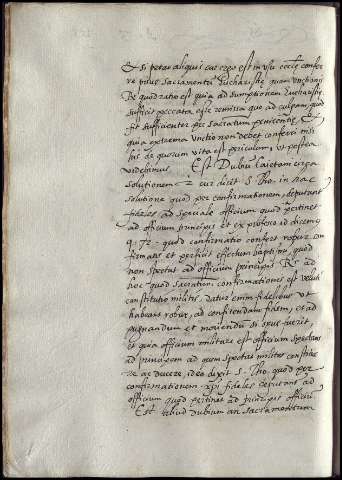 Et si petas aliquis cur ergo est in usu eccle confer
re prius sacramentu Eucharistie quam unctionis
Re quod ratio est quia ad sumptionem Eucharistie
sufficit peccata esse remissa quo ad culpam, quod
fit sufficienter per sacramtum penitentie. Et
quia extrema unctio non debet conferri nisi
his de quorum vita est periculum, ut postea
videbimus. Est Dubiu Caietan circa
solutionem 2 cur dicit S. Tho. in hac
solutione quod per confirmationem, deputant
fideles ad speciale officium quod pertinet
ad officium principis et ex professo id dicemus
q. 72. quod confirmatio confert robur con
firmatis et perficit effectum baptismi, quod
non spectat ad officium principis. Rs ad
hoc quod sacramtum confirmationis est velut
constitutio militis. datur enim fidelibus ut
habeant robur, ad confitendam fidem, et ad
pugnandum et moriendu si opus fuerit,
et quia officium militare est officium spectans
ad principem ad quem spectat milites constitue
re ac ducere, ideo dixit S. Tho. quod per
confirmationem xpi fideles deputant ad
officium quod pertinet ad principis officiu
Est aliud dubium an sacramentorum